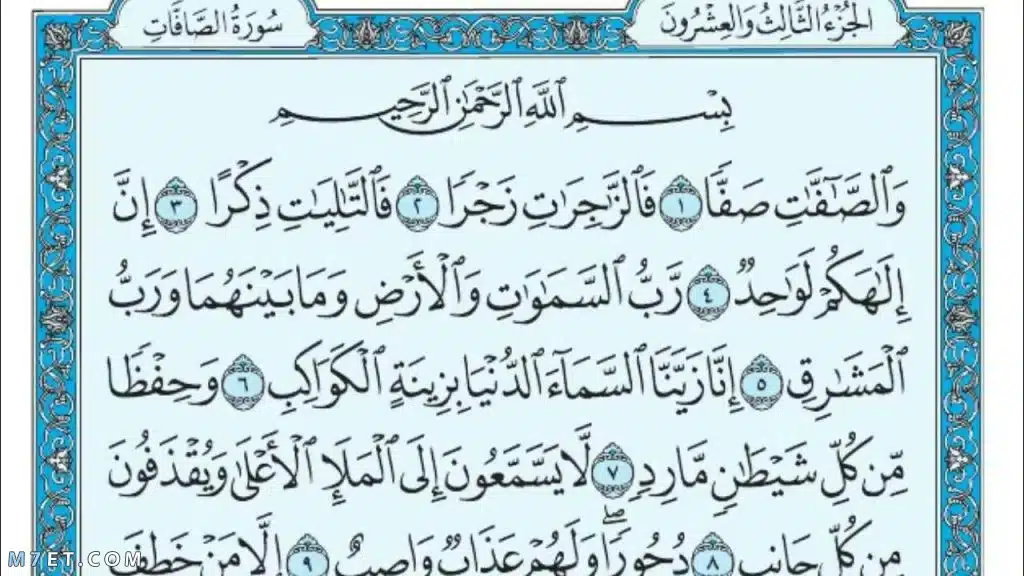 الجُزْءُ الثَّالِثُ وَالعِشْرُونَ
سُورَةُ الصَّافَاتِ
بِسْمِ ٱللَّهِ ٱلرَّحْمَٰنِ ٱلرَّحِيمِ
وَٱلصَّٰٓفَّٰتِ صَفًّا ١ فَٱلزَّٰجِرَٰتِ زَجْرًا ٢ فَٱلتَّٰلِيَٰتِ ذِكْرًا ٣ إِنَّ
إِلَٰهَكُمْ لَوَٰحِدٌ ٤ رَّبُّ ٱلسَّمَٰوَٰتِ وَٱلْأَرْضِ وَمَا بَيْنَهُمَا وَرَبُّ
ٱلْمَشَٰرِقِ ٥ إِنَّا زَيَّنَّا ٱلسَّمَآءَ ٱلدُّنْيَا بِزِينَةٍ ٱلْكَوَاكِبِ ٦ وَحِفْظًا
مِّن كُلِّ شَيْطَٰنٍ مَّارِدٍ ٧ لَّا يَسَّمَّعُونَ إِلَى ٱلْمَلَإِ ٱلْأَعْلَىٰ وَيُقْذَفُونَ
مِن كُلِّ جَانِبٍ ٨ دُحُورًاۖ وَلَهُمْ عَذَابٌ وَاصِبٌ ٩ إِلَّا مَنْ خَطِفَ
M7ET.COM